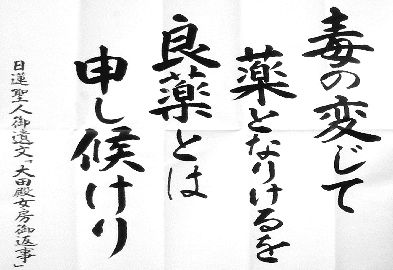 毒の変じて
薬となりけるを
良薬とは
申し候けり
日蓮聖人御遺文「大田殿女房御返事」